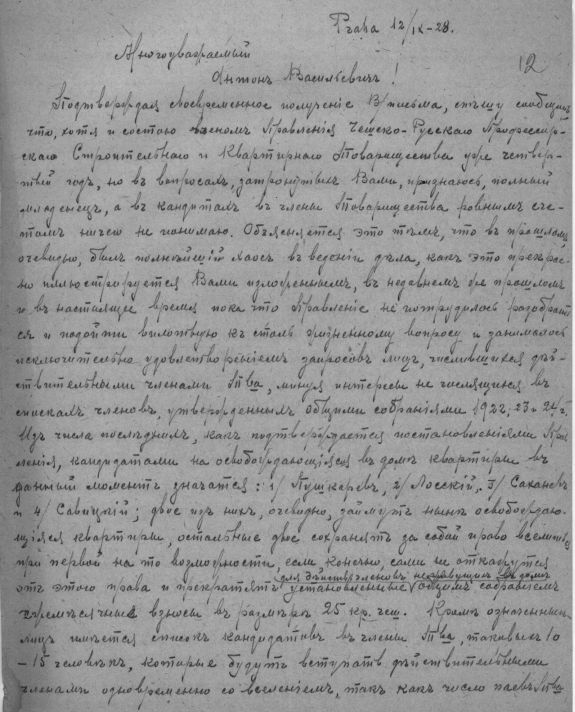 Praha 12/IX-28.
12
Многоуважаемый
Антонъ Васильевичъ!
Подтверждая своевременное полученіе В/письма, спѣшу сообщить
что, хотя и состою членомъ Правленія Чешско-Русскаго Профессор-
скаго Строительнаго и Квартирнаго Товарищества уже четвер-
тый годъ, но въ вопросахъ, затронутыхъ Вами, признаюсь, полный
младенецъ, а въ кандидатахъ въ члены Товарищества ровнымъ сче-
томъ ничего не понимаю. Объясняется это тѣмъ, что въ прошломъ
очевидно, былъ полнѣйшій хаосъ въ веденіи дѣла, какъ это прекрас-
но иллюстрируется Вами изложеннымъ, въ недавнемъ же прошломъ
и въ настоящее время пока что Правленіе не потрудилось разобрать-
ся и подойти вплотную къ столь жизненному вопросу и занималось
исключительно удовлетвореніемъ запросовъ лицъ, числившихся дѣй-
ствительными членами Т-ва, минуя интересы не числящихся въ
спискахъ членовъ, утвержденныхъ общими собраніями 1922, 23 и 24 г.
Изъ числа послѣднихъ, какъ подтверждается постановленіями Прав-
ленія, кандидатами на освобождающіяся въ домѣ квартиры въ
данный моментъ значатся: 1/ Пушкаревъ, 2/ Лосскій, 3/ Саханевъ
и 4/ Савицкій; двое изъ нихъ, очевидно, займутъ нынѣ освобождаю-
щіяся квартиры, остальные двое сохранятъ за собой право вселиться
при первой на то возможности, если, конечно, сами не откажутся
отъ этого права и прекратятъ установленные общимъ собраніемъ
для дѣйств. членовъ не живущихъ въ домѣ
ежемѣсячные взносы въ размѣрѣ 25 кр. чеш. Кромѣ означенныхъ
лицъ имѣется списокъ кандидатовъ въ члены Т-ва, таковыхъ 10
-15 человѣкъ, которые будутъ вступать дѣйствительными
членами одновременно со вселеніемъ, такъ какъ число паевъ Т-ва